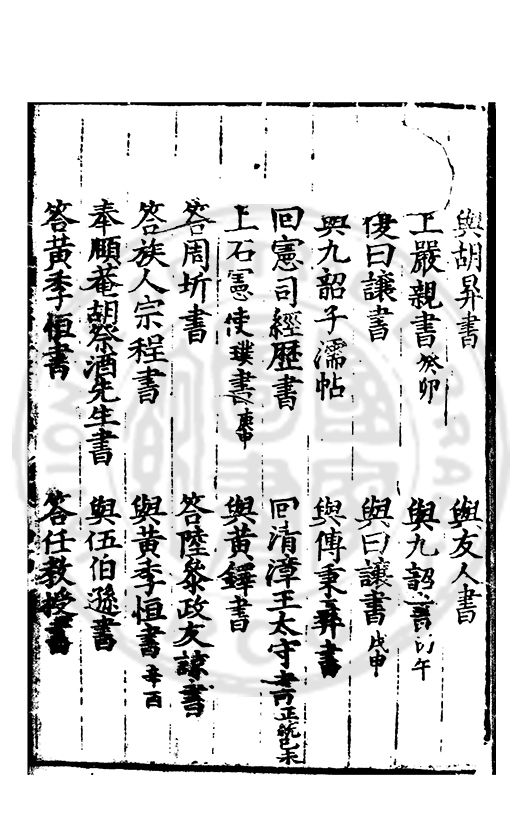 與胡昇書
與友人書
上嚴親書 癸卯
與九韶書 午
復曰讓書
與曰讓書 戊申
與九韶子濡帖
與傅秉彝書
回憲司經歷書
回清漳王太守書 正統己未
上石憲使璞書 庚申
與黃鐸書
答周圻書
答陸參政友諒書
答族人宗程書
與黃季恒書 辛酉
奉順菴胡祭酒先生書
與伍伯遜書
答黃季恒書
答任教授書